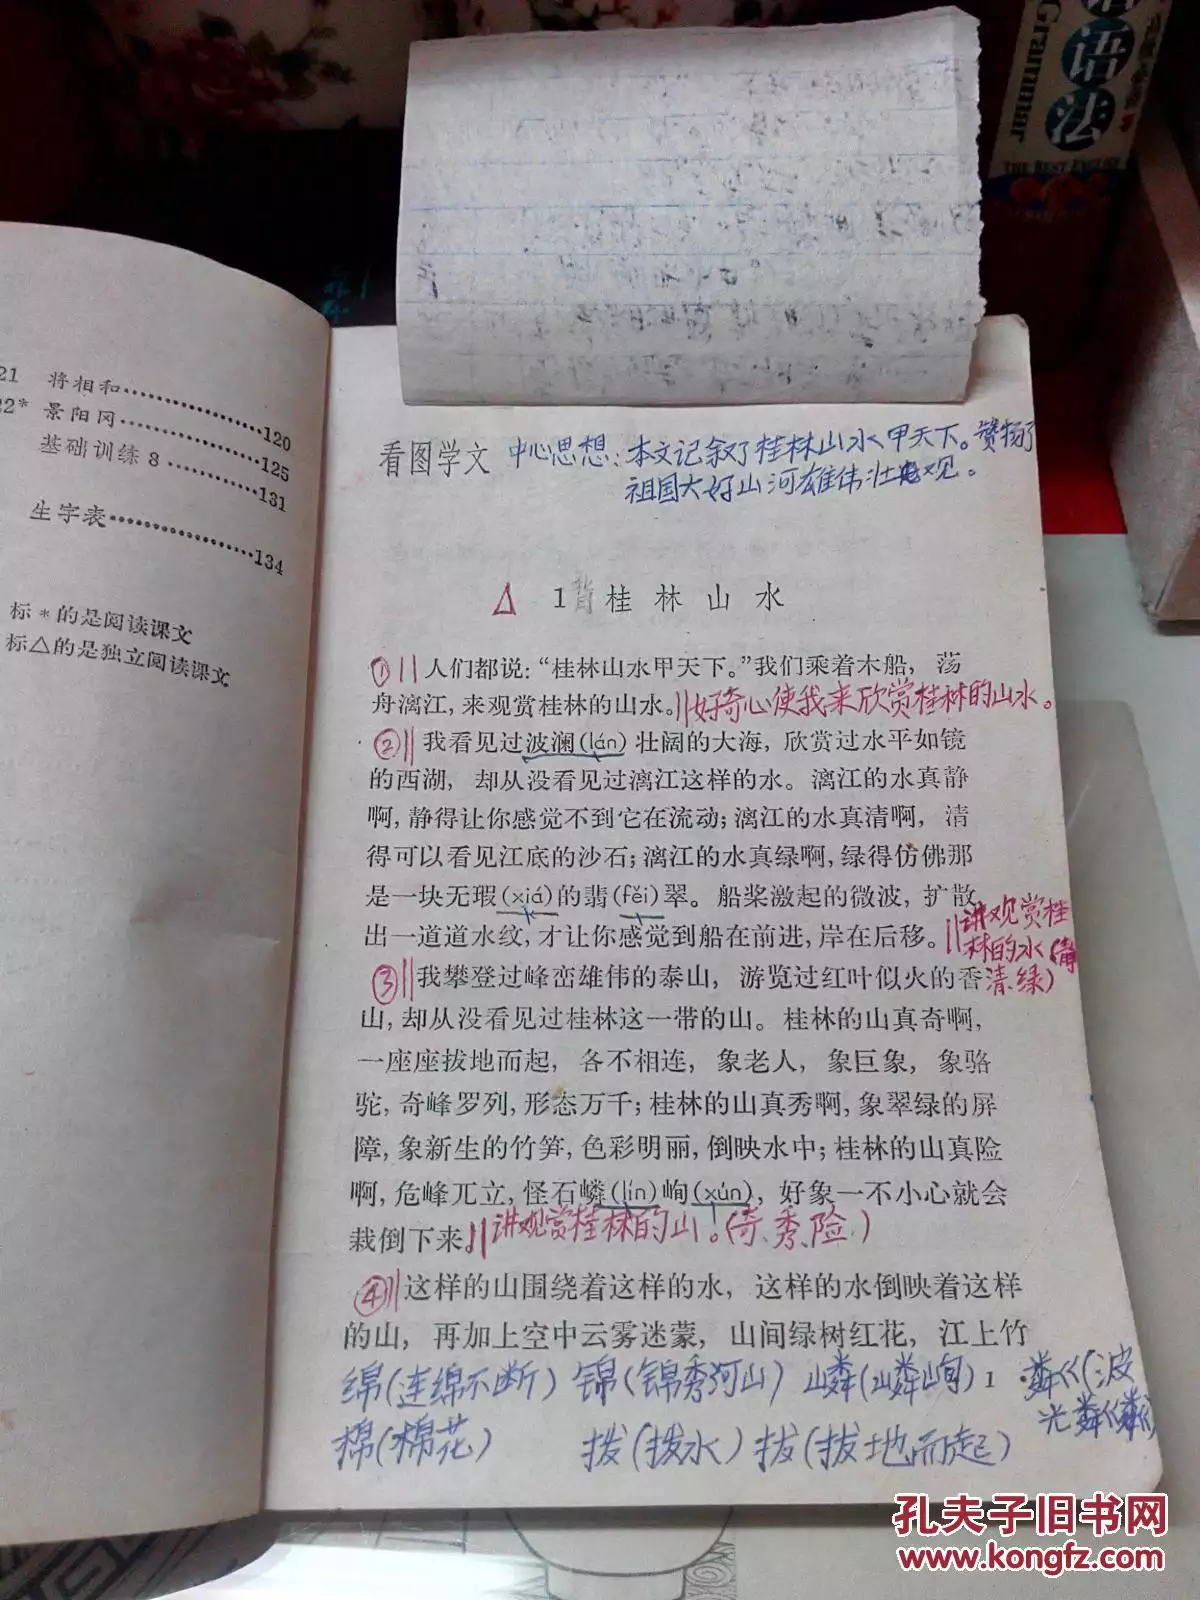 语法
Grammar
THE BEST ENGLISH
21 将相和…………………120
22* 景阳冈…………………125
基础训练8…………………131
生字表…………………134
标*的是阅读课文
标△的是独立阅读课文
看图学文 中心思想:本文记叙了桂林山水甲天下。赞扬了
祖国大好山河雄伟壮观。
△ 1 背 桂林山水
①‖人们都说:“桂林山水甲天下。”我们乘着木船,荡
舟漓江,来观赏桂林的山水。‖好奇心使我来欣赏桂林的山水。
②‖我看见过波澜(lán)壮阔的大海,欣赏过水平如镜
的西湖,却从没看见过漓江这样的水。漓江的水真静
啊,静得让你感觉不到它在流动;漓江的水真清啊,清
得可以看见江底的沙石;漓江的水真绿啊,绿得仿佛那
是一块无瑕(xiá)的翡(fěi)翠。船桨激起的微波,扩散
出一道道水纹,才让你感觉到船在前进,岸在后移。
‖讲观赏桂
林的水(静
清.绿)
③‖我攀登过峰峦雄伟的泰山,游览过红叶似火的香
山,却从没看见过桂林这一带的山。桂林的山真奇啊,
一座座拔地而起,各不相连,象老人,象巨象,象骆
驼,奇峰罗列,形态万千;桂林的山真秀啊,象翠绿的屏
障,象新生的竹笋,色彩明丽,倒映水中;桂林的山真险
啊,危峰兀立,怪石嶙(lín)峋(xún),好象一不小心就会
栽倒下来。‖讲观赏桂林的山。(奇、秀、险.)
④‖这样的山围绕着这样的水,这样的水倒映着这样
的山,再加上空中云雾迷蒙,山间绿树红花,江上竹
绵(连绵不断) 锦(锦秀河山) 嶙(嶙峋) 1 · 粼(波
光粼粼)
棉(棉花) 拨(拨水) 拔(拔地而起)
孔夫子旧书网
www.kongfz.com